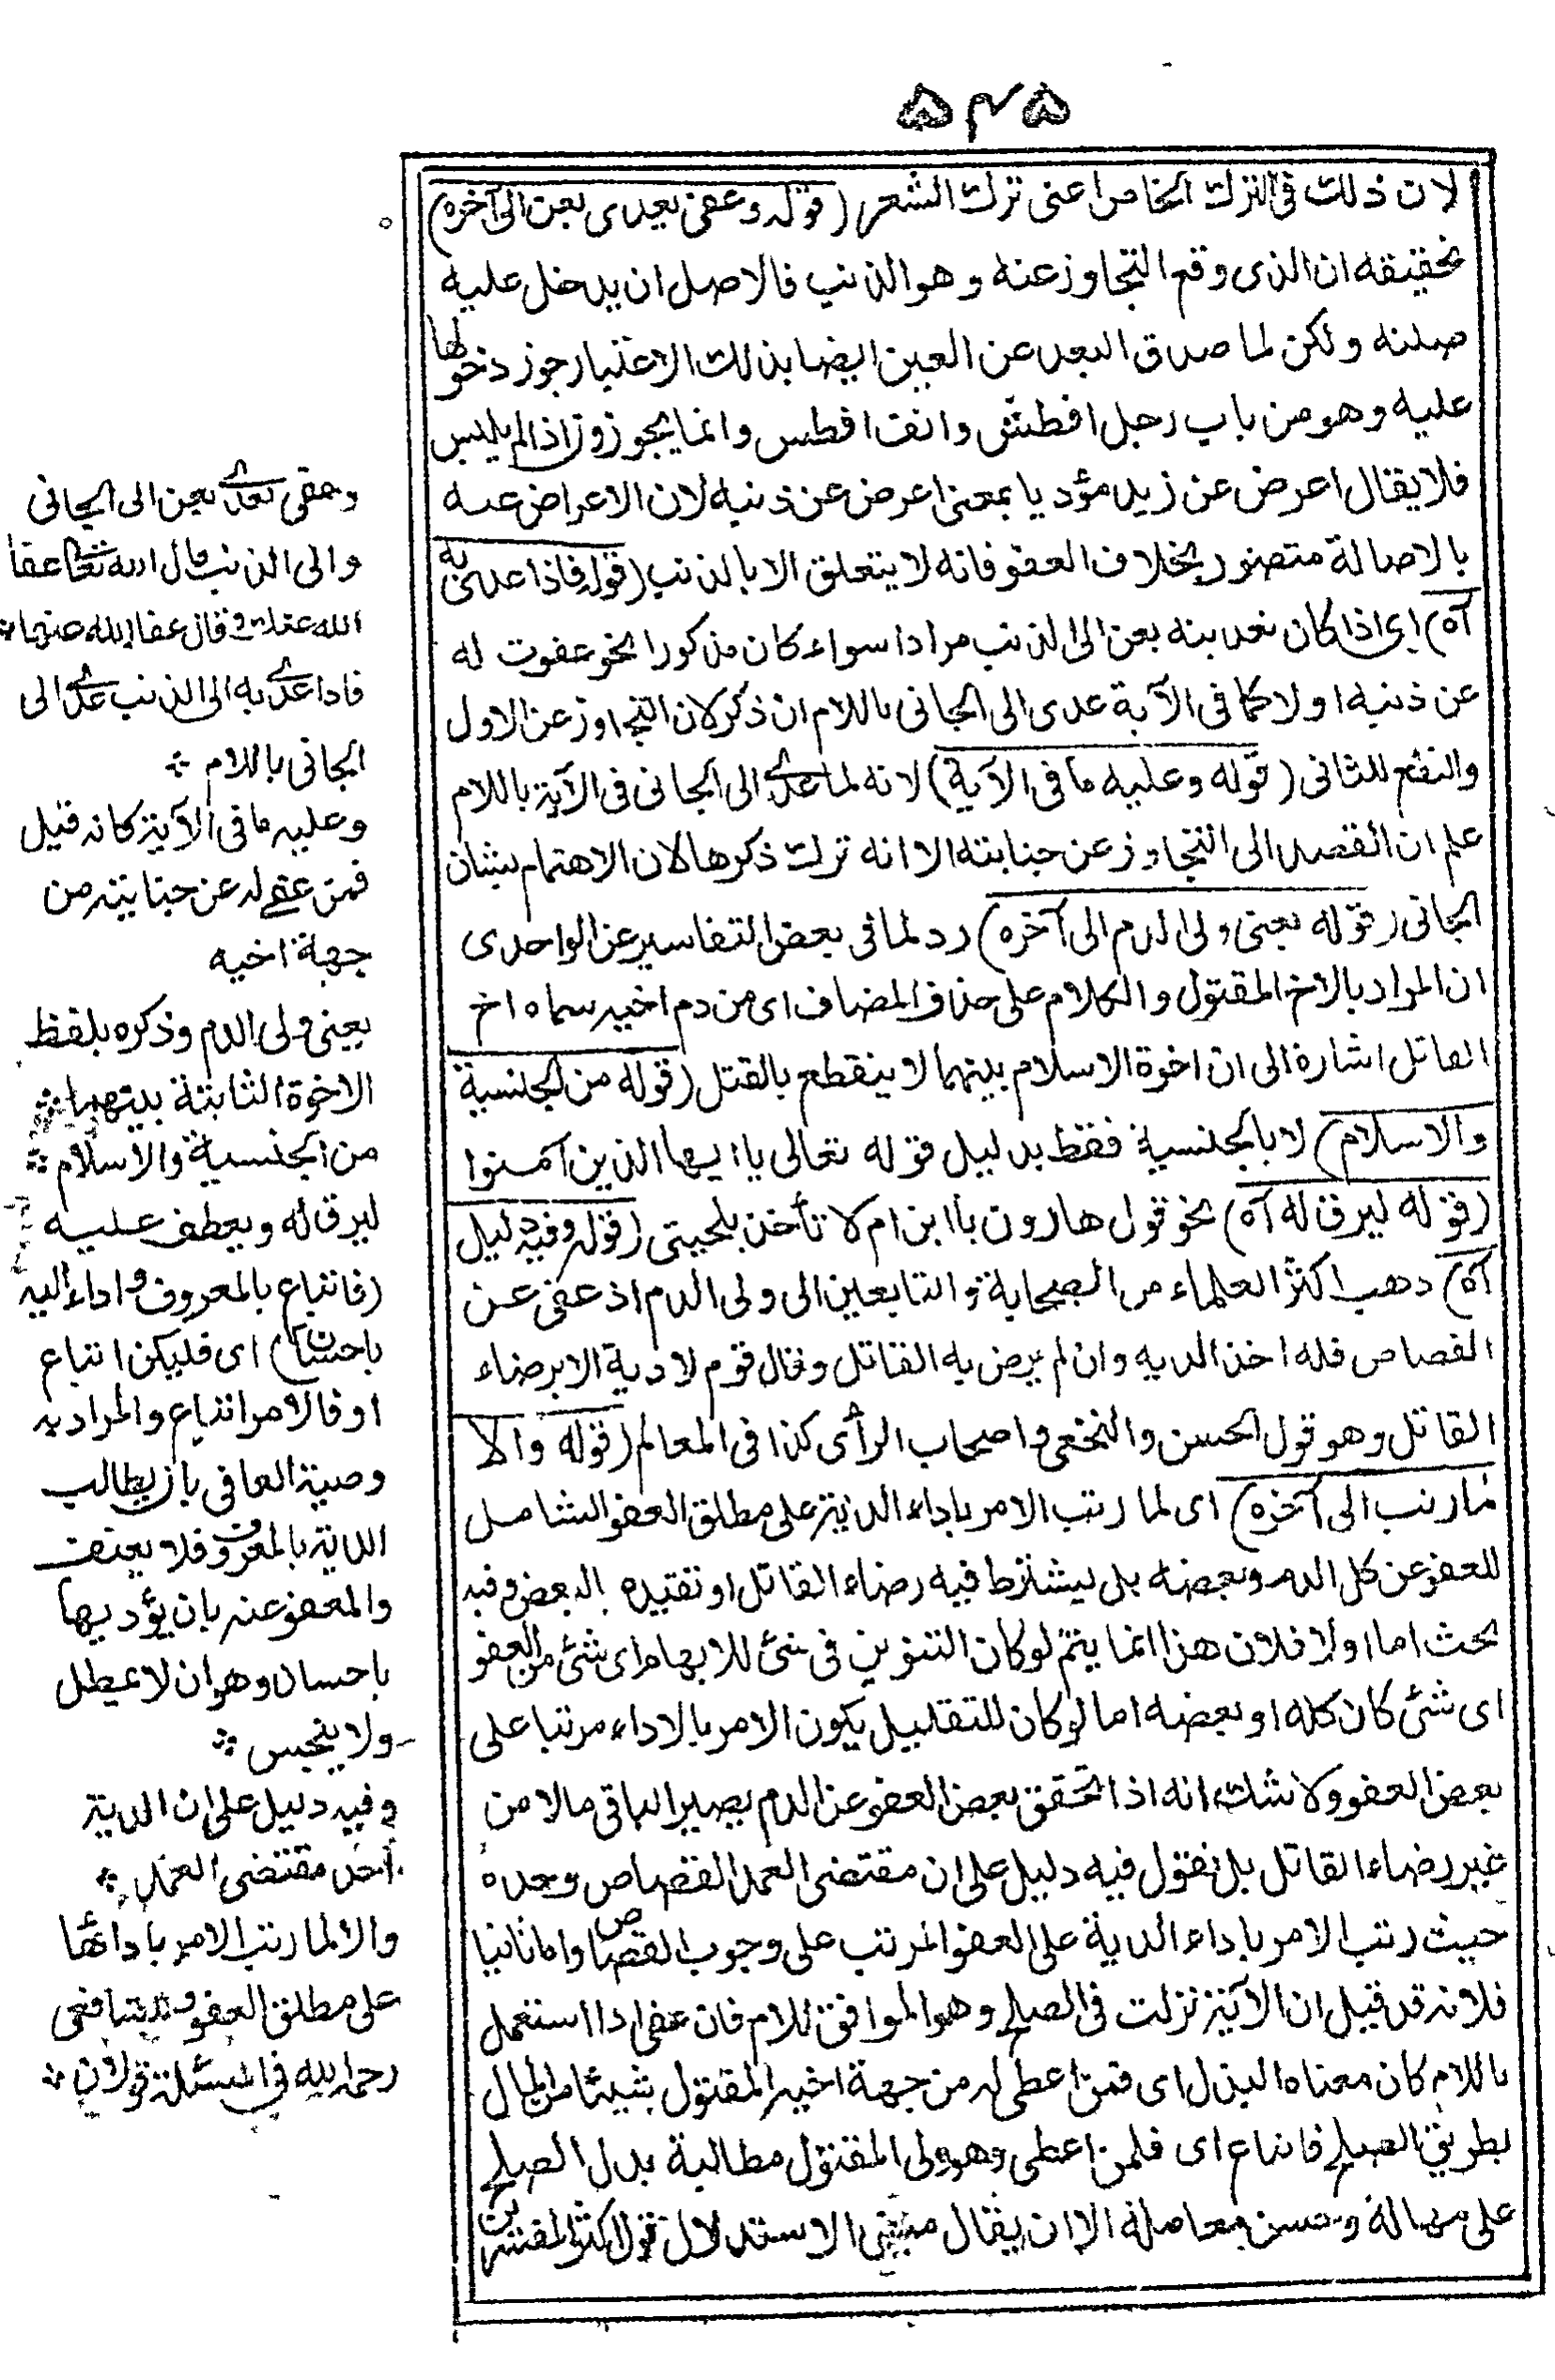 ۵۴۵
لان ذلك فى الترك الخاص اعنى ترك الشعر (قوله وعفى يعدى بعن الى آخره)
تحقيقه ان الذى وقع التجاوز عنه وهو الذنب فالاصل ان يدخل عليه
صلته ولكن لما صدق البعد عن العين ايضا بذلك الاعتبار جوز دخولها
عليه وهو من باب رجل افطس وانف افطس وانما يجوز اذا لم يلبس
فلا يقال اعرض عن زيد مؤديا بمعنى اعرض عن ذنبه لان الاعراض عنه
بالاصالة متصور بخلاف العفو فانه لا يتعلق الا بالذنب (قوله فاذا عدى به
آه) اى اذا كان تعديته بعن الى الذنب مرادا سواء كان مذكورا نحو عفوت له
عن ذنبه اولا كما فى الآية عدى الى الجانى باللام ان ذكر لان التجاوز عن الاول
والنفع للثانى (قوله وعليه ما فى الآية) لانه لما عدى الى الجانى فى الآية باللام
علم ان القصد الى التجاوز عن جنايته الا انه ترك ذكرها لان الاهتمام بشان
الجانى (قوله يعنى ولى الدم الى آخره) رد لما فى بعض التفاسير عن الواحدى
ان المراد بالاخ المقتول والكلام على حذف المضاف اى من دم اخيه سماه اخ
القاتل اشارة الى ان اخوة الاسلام بينهما لا ينقطع بالقتل (قوله من الجنسية
والاسلام) لا بالجنسية فقط بدليل قوله تعالى يا ايها الذين آمنوا
(قوله ليرق له آه) نحو قول هارون يا ابن ام لا تأخذ بلحيتى (قوله وفيه دليل
آه) ذهب اكثر العلماء من الصحابة والتابعين الى ولى الدم اذ عفى عن
القصاص فله اخذ الديه وان لم يرض به القاتل وقال قوم لا دية الا برضاء
القاتل وهو قول الحسن والنخعى واصحاب الرأى كذا فى المعالم (قوله والا
لما رتب الى آخره) اى لما رتب الامر باداء الدية على مطلق العفو الشامل
للعفو عن كل الدم وبعضه بل يشترط فيه رضاء القاتل او تقييده بالبعض وفيه
بحث اما اولا فلان هذا انما يتم لو كان التنوين فى شئ للابهام اى شئ من العفو
اى شئ كان كله او بعضه اما لو كان للتقليل يكون الامر بالاداء مرتبا على
بعض العفو ولا شك انه اذا تحقق بعض العفو عن الدم يصير الباقى مالا من
غير رضاء القاتل بل نقول فيه دليل على ان مقتضى العمد القصاص وحده
حيث رتب الامر باداء الدية على العفو المرتب على وجوب القصاص واما ثانيا
فلانه قد قيل ان الآية نزلت فى الصلح وهو الموافق للام فان عفى اذا استعمل
باللام كان معناه البذل اى فمن اعطى له من جهة اخيه المقتول شيئا من المال
بطريق الصلح فاتباع اى فلمن اعطى وهو ولى المقتول مطالبة بدل الصلح
على مساهلة وحسن معاملة الا ان يقال مبنى الاستدلال قول اكثر المفسرين
وعفى يعدى بعن الى الجانى
والى الذنب قال الله تعالى عفا
الله عنك وقال عفا الله عنها
فاذا عدى به الى الذنب عدى الى
الجانى باللام
وعليه ما فى الآية كانه قيل
فمن عفى له عن جنايته من
جهة اخيه
يعنى ولى الدم وذكره بلفظ
الاخوة الثابتة بينهما
من الجنسية والاسلام
ليرق له ويعطف عليه
(فاتباع بالمعروف واداء اليه
باحسان) اى فليكن اتباع
او فالامر اتباع والمراد به
وصية العافى بان يطالب
الدية بالمعروف فلا يعنف
والمعفو عنه بان يؤديها
باحسان وهو ان لا يمطل
ولا يبخس
وفيه دليل على ان الدية
احد مقتضى العمد
والا لما رتب الامر بادائها
على مطلق العفو وللشافعى
رحمه الله فى المسئلة قولان